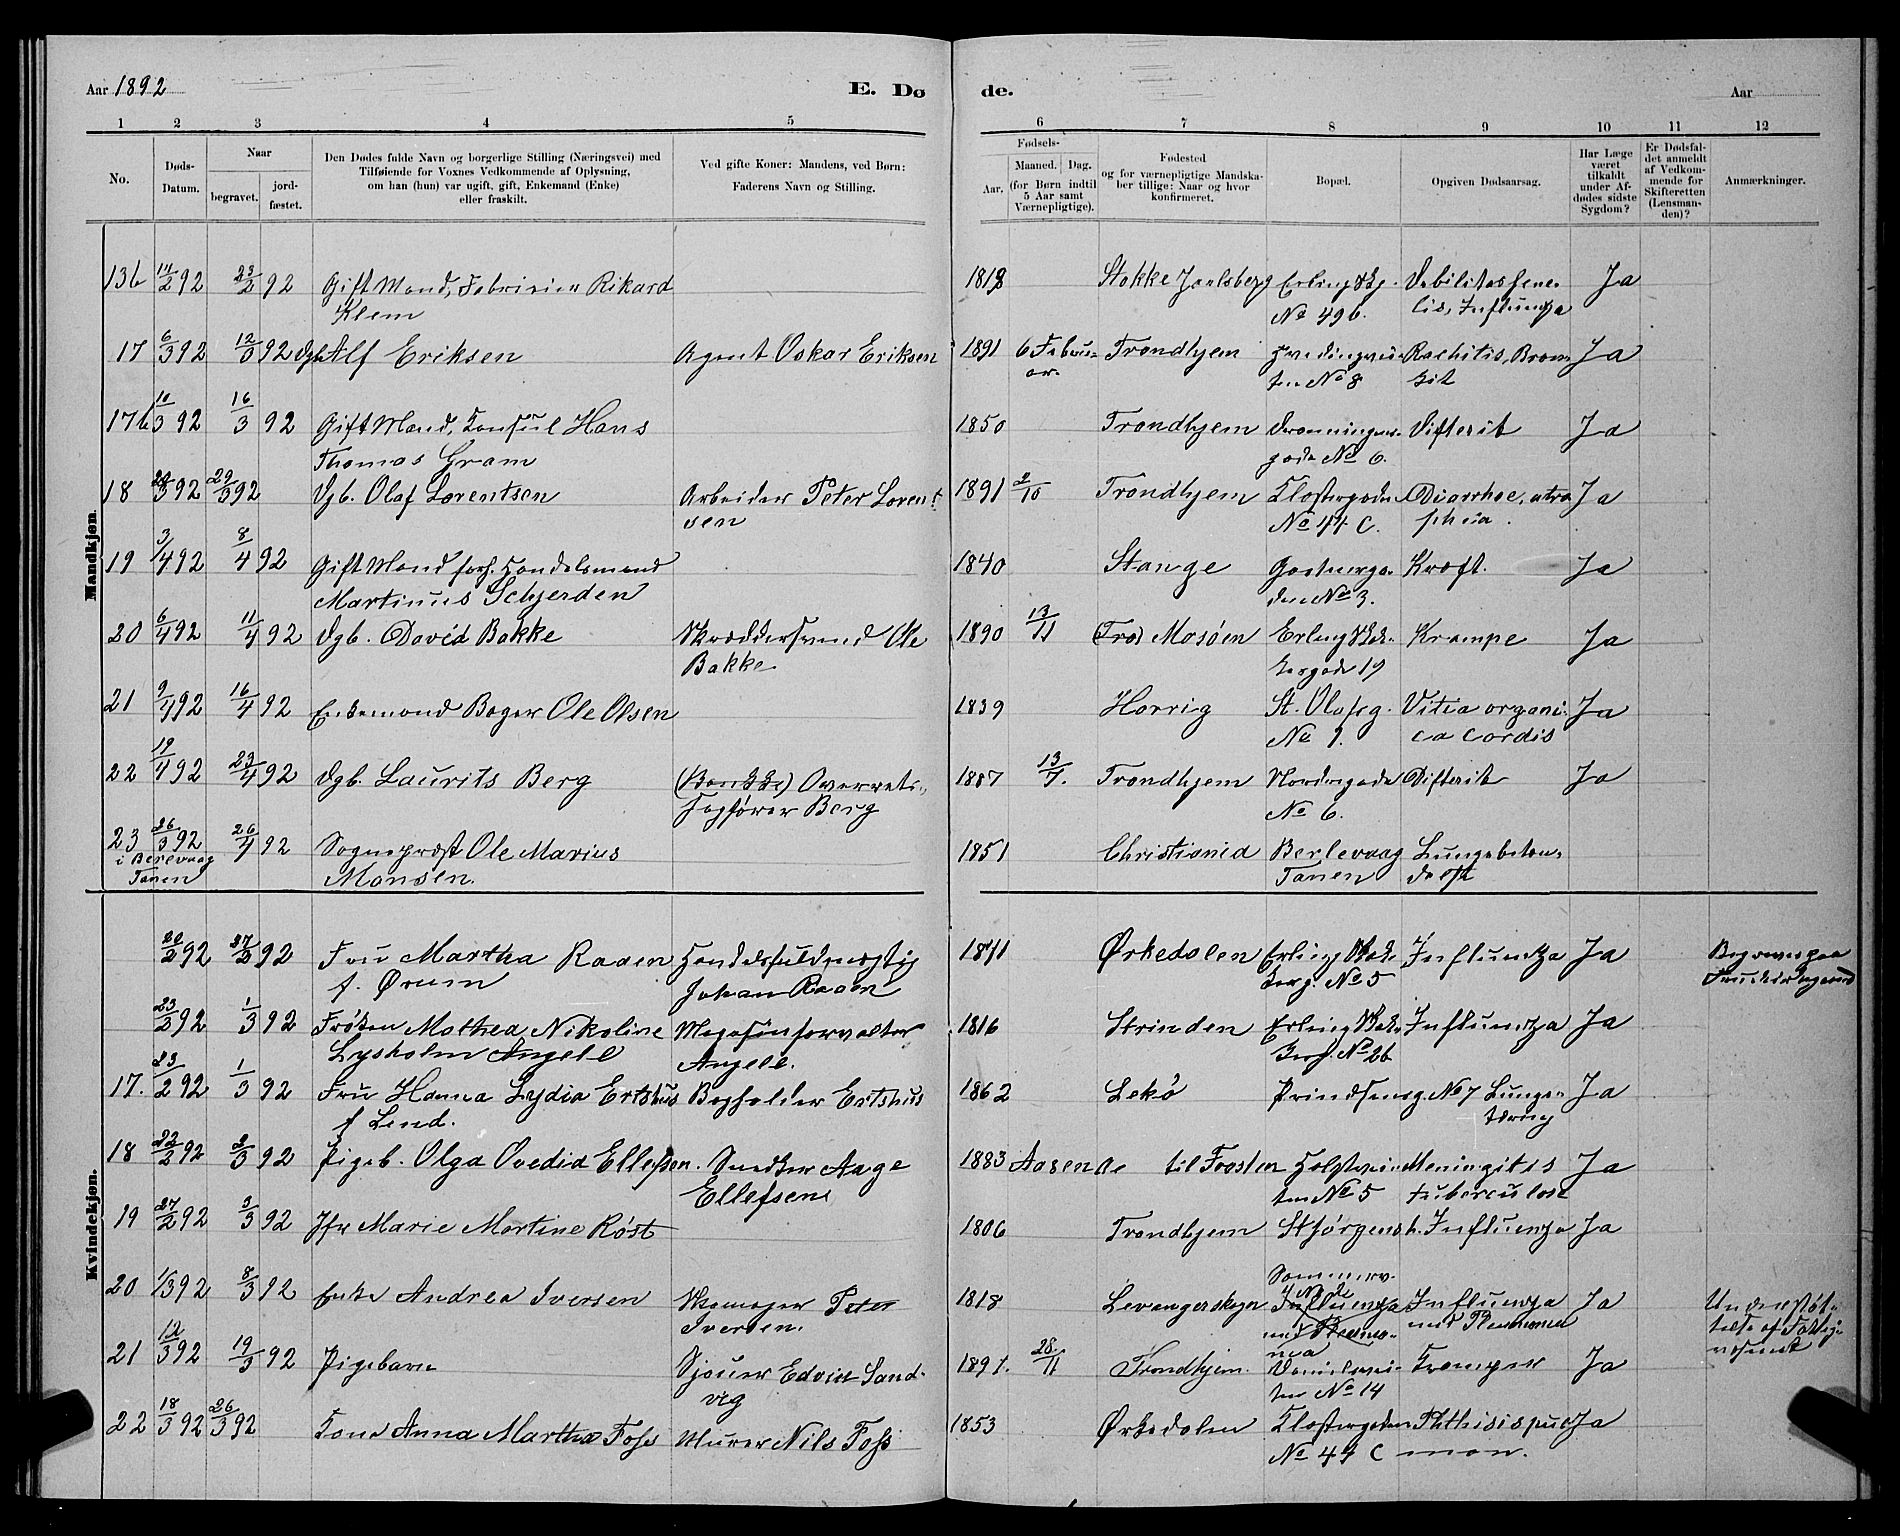 Aar 1892
E. Dø
de.
Aar
1 2 3 4 5
6 7 8 9 10 11 12
No.
Døds-
Datum.
Naar
begravet.
jord-
fæstet.
Den Dødes fulde Navn og borgerlige Stilling (Næringsvei) med
Tilføiende for Voxnes Vedkommende af Oplysning,
om han (hun) var ugift, gift, Enkemand (Enke)
eller fraskilt.
Ved gifte Koner: Mandens, ved Børn:
Faderens Navn og Stilling.
Fødsels-
Aar.
Maaned. Dag.
(for Børn indtil
5 Aar samt
Værnepligtige).
Fødested
og for værnepligtige Mandska-
ber tillige: Naar og hvor
konfirmeret.
Bopæl.
Opgiven Dødsaarsag.
Har Læge
været
tilkaldt
under Af-
dødes sidste
Sygdom?
Er Dødsfal-
det anmeldt
af Vedkom-
mende for
Skifteretten
(Lensman-
den)?
Anmærkninger.
Mandkjøn.
13b 14/2 92 23/2 92 Gift Mand, Rikard 1818 Stokke Jarlsberg Ja
Klem No 49b. Influenza
17 6/3 92 12/3 92 Alf Eriksen Agent Oskar Eriksen 1891 6 Februar Trondhjem Rachitis, Bron- Ja
No 8 kit
17b 10/3 92 16/3 92 Gift Mand, Konsul Hans 1850 Trondhjem Dronningens- Difterit Ja
Thomas Gram gade No 6.
18 92 29/3 92 Dgb. Olaf Lorentsen Arbeider Peter Lorent- 1891 2/10 Trondhjem Klostergaden Diarrhoe, atro- Ja
sen No 44 C. phia.
19 3/4 92 8/4 92 Gift Mand forh. Handelsmand 1840 Stange Kræft. Ja
Martinus Schjerden No 3.
20 6/4 92 11/4 92 Dgb. David Bakke Skræddersvend Ole 1890 13/11 Mosøen Erling Skak- Krampe Ja
Bakke kesgade 19
21 9/4 92 16/4 92 Enkemand Bager Ole Olsen 1839 Horrig St. Olafsg. Vitia organi- Ja
No 1. ca cordis
22 19/4 92 23/4 92 Dgb. Laurits Berg Overrets- 1887 13/7. Trondhjem Nordregade Difterit Ja
sagfører Berg No 6.
23 26/3 92 26/4 92 Sogneprest Ole Marius 1851 Christiania Berlevaag Lungebeten-
i Berlevaag
Tanen Monsen. Tanen delse
Kvindekjøn.
20/2 92 27/2 92 Fru Martha Raaen Handelsfuldmægtig 1841 Ørkedalen Erling Skak- Influentza Ja Begraves paa
f. Ørum Johan Raaen kesg. No 5
23/2 92 1/3 92 Frøken Mathea Nikoline Magasinforvalter 1816 Strinden Erling Skak- Influentza Ja
Lysholm Angell Angell. No 26
17. 23/2 92 1/3 92 Fru Hanna Lydia Ertshus Bogholder Ertshus 1862 Lekø Prindsensg. No 7 Lunge- Ja
f Lend. tæring
18 22/2 92 2/3 92 Pigeb. Olga Ovedia Ellefsen. Snedker Aage 1883 Aasen til Frosten Meningitis Ja
Ellefsen No 5 tuberculosa
19 27/2 92 3/3 92 Jfr Marie Martine Røst 1806 Trondhjem St Jørgensh. Influenza Ja
20 1/3 92 8/3 92 Enke Andrea Iversen Skomager Peter 1818 Levangerskogn Influenza Ja
Iversen. med Pleumonia
21 12/3 92 19/3 92 Pigebarn Sjouer Edvin Sand- 1891. 28/11 Trondhjem. Kramper Ja
vig No 14
22 18/3 92 26/3 92 Kone Anna Martha Foss Murer Nils Foss 1853 Ørkedalen Klostergaden Phthisis pul- Ja
No 44 C mon.